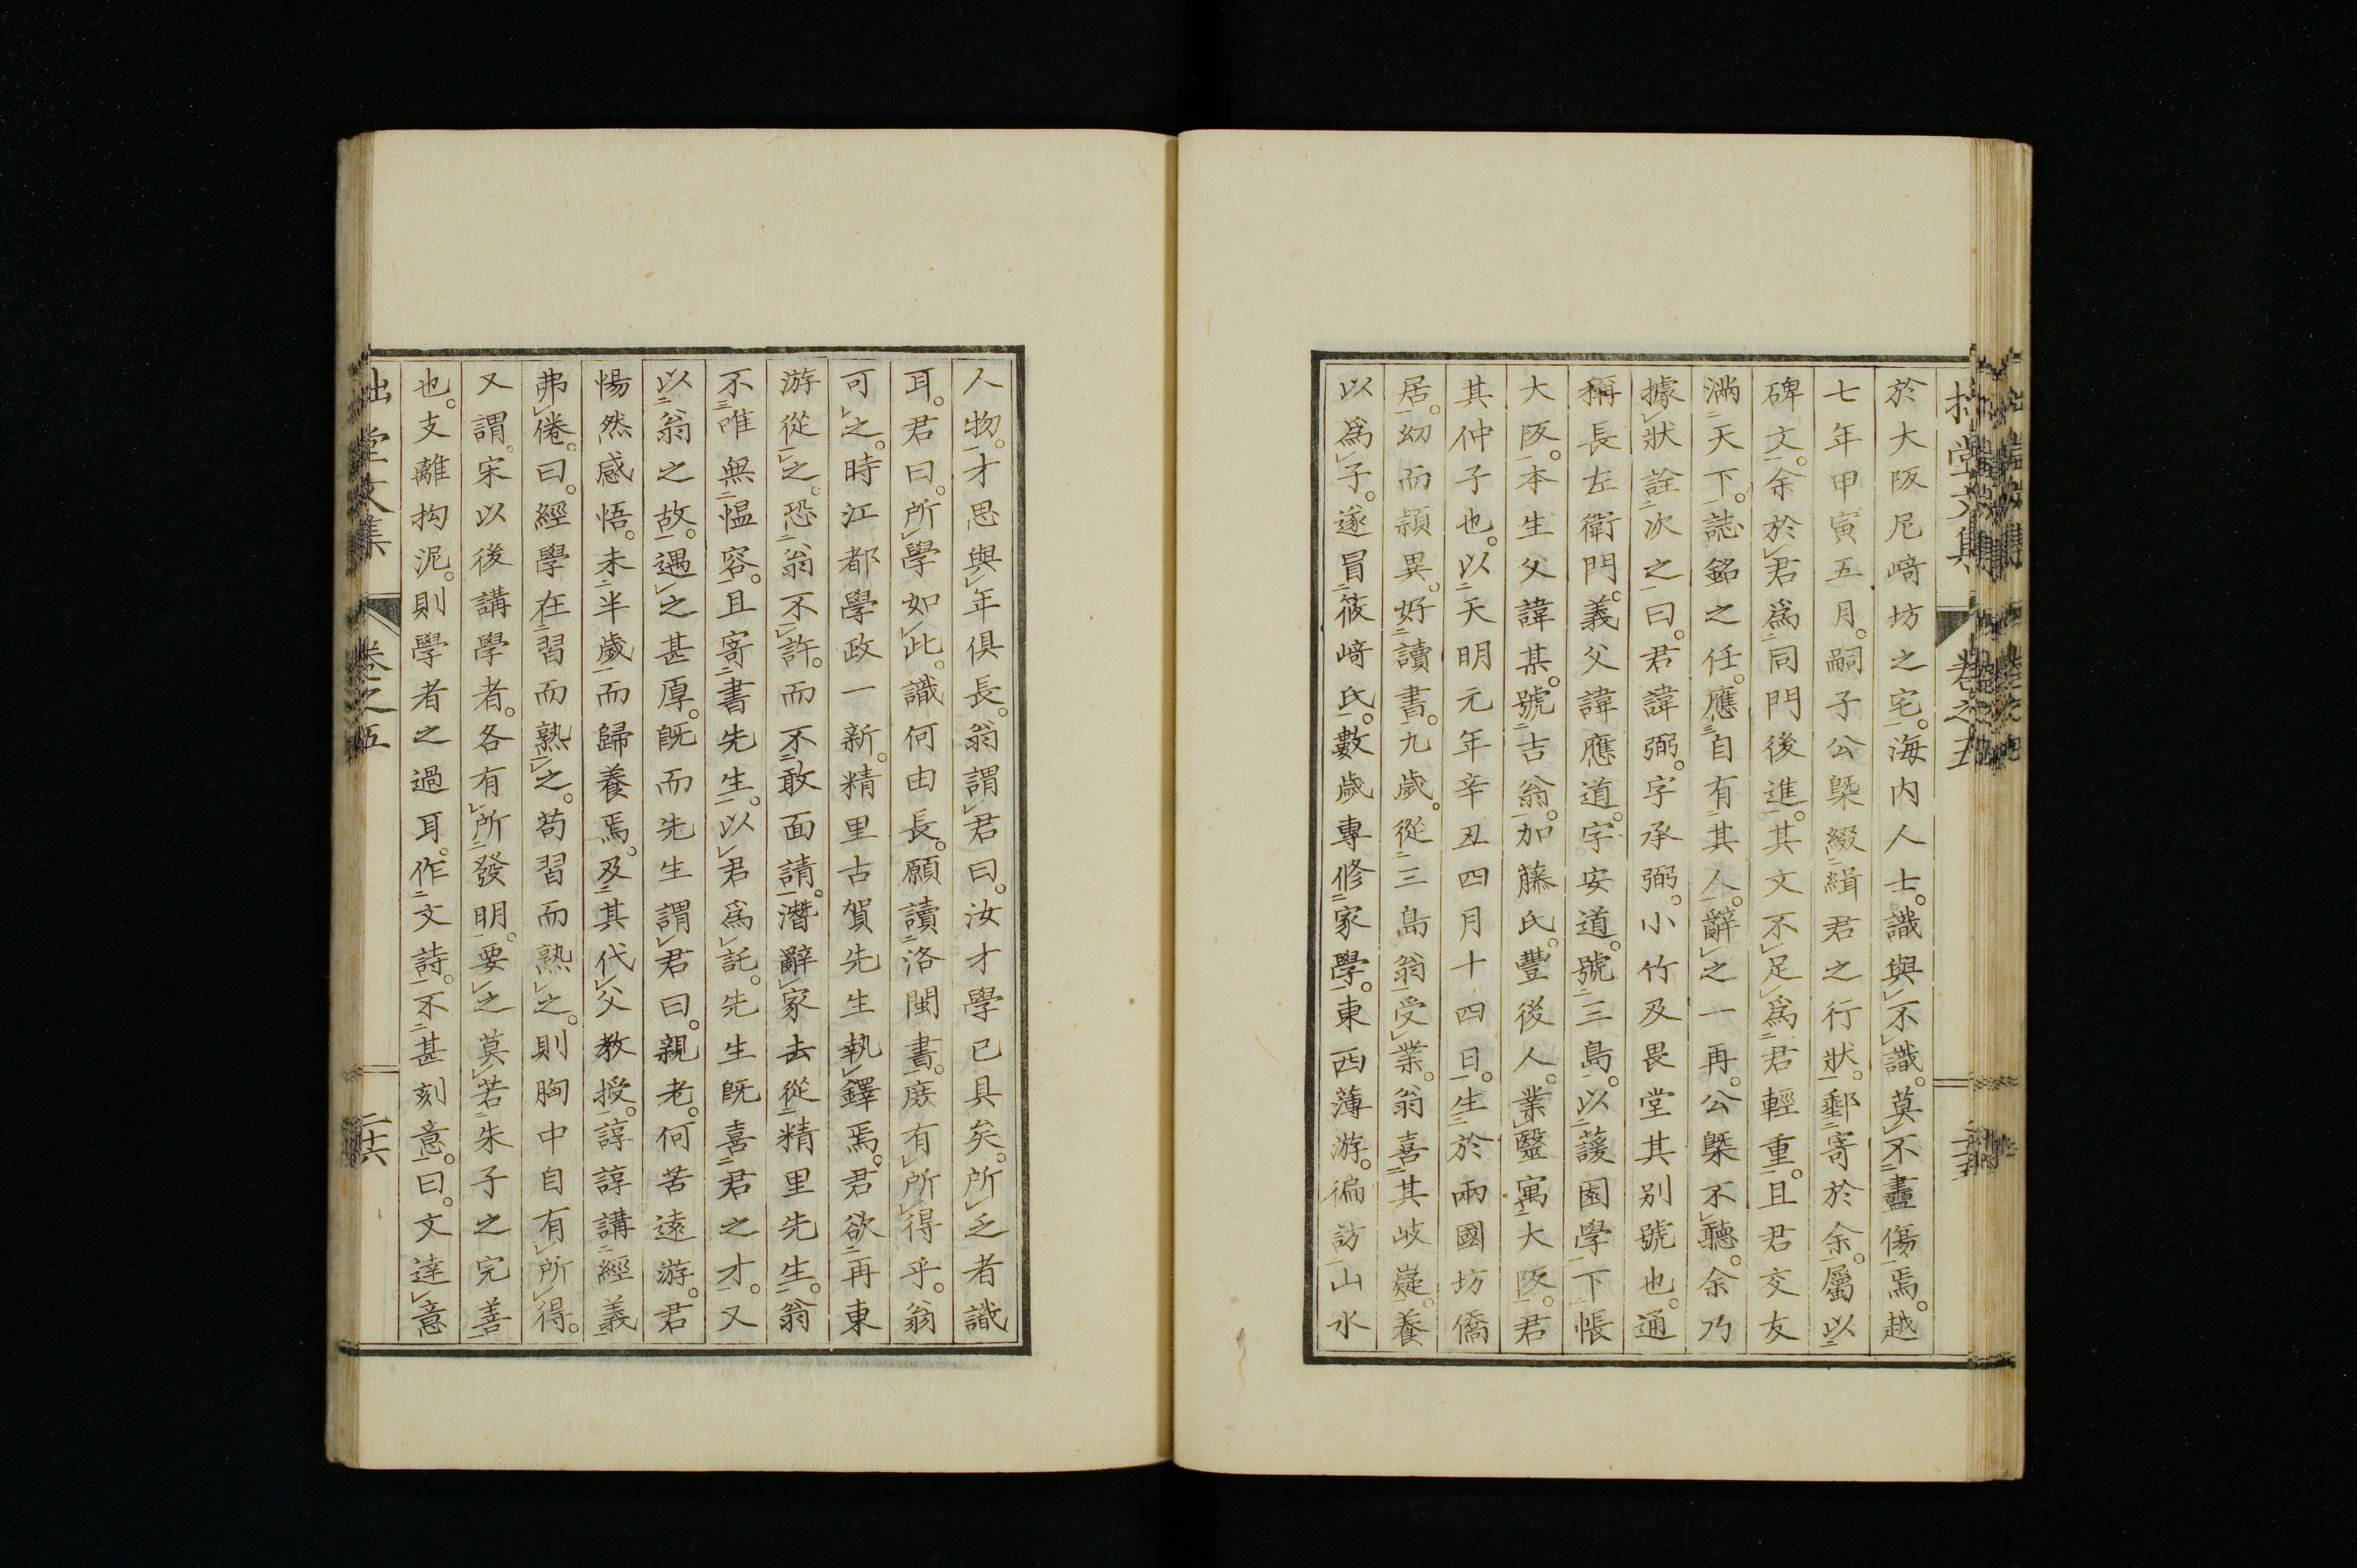 於大阪尼﨑坊之宅。海内人士。識與不識。莫不盡傷焉。越
七年甲寅五月。嗣子公㮣綴緝君之行狀。郵寄於余。屬以
碑文。余於君爲同門後進。其文不足爲君輕重。且君交友
滿天下。誌銘之任。應自有其人。辭之一再。公㮣不聽。余乃
據狀詮次之曰。君諱弼。字承弼。小竹及畏堂其別號也。通
稱長左衛門。義父諱應道。字安道。號三島。以蘐園學下帳
大阪。本生父諱某。號吉翁。加藤氏。豐後人。業醫寓大阪。君
其仲子也。以天明元年辛丑四月十四日。生於兩國坊僑
居。幼而頴異。好讀書。九歲。從三島翁受業。翁喜其岐嶷。養
以爲子。遂冒筱﨑氏。數歲專修家學。東西薄游。徧訪山水
人物。才思與年俱長。翁謂君曰。汝才學已具矣。所乏者識
耳。君曰。所學如此。識何由長。願讀洛閩書。庶有所得乎。翁
可之。時江都學政一新。精里古賀先生執鐸焉。君欲再東
游從之。恐翁不許。而不敢面請。潛辭家去從精里先生。翁
不唯無慍容。且寄書先生。以君爲託。先生既喜君之才。又
以翁之故。遇之甚厚。既而先生謂君曰。親老。何苦遠游。君
惕然感悟。未半歲而歸養焉。及其代父教授。諄諄講經義
弗倦。曰。經學在習而熟之。苟習而熟之。則胸中自有所得。
又謂。宋以後講學者。各有所發明。要之莫若朱子之完善
也。支離拘泥。則學者之過耳。作文詩。不甚刻意。曰。文達意